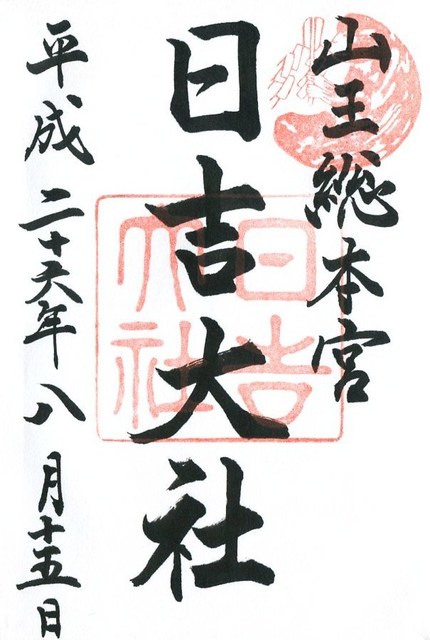 山王総本宮
日吉大社
日吉大社
平成二十六年八月十五日